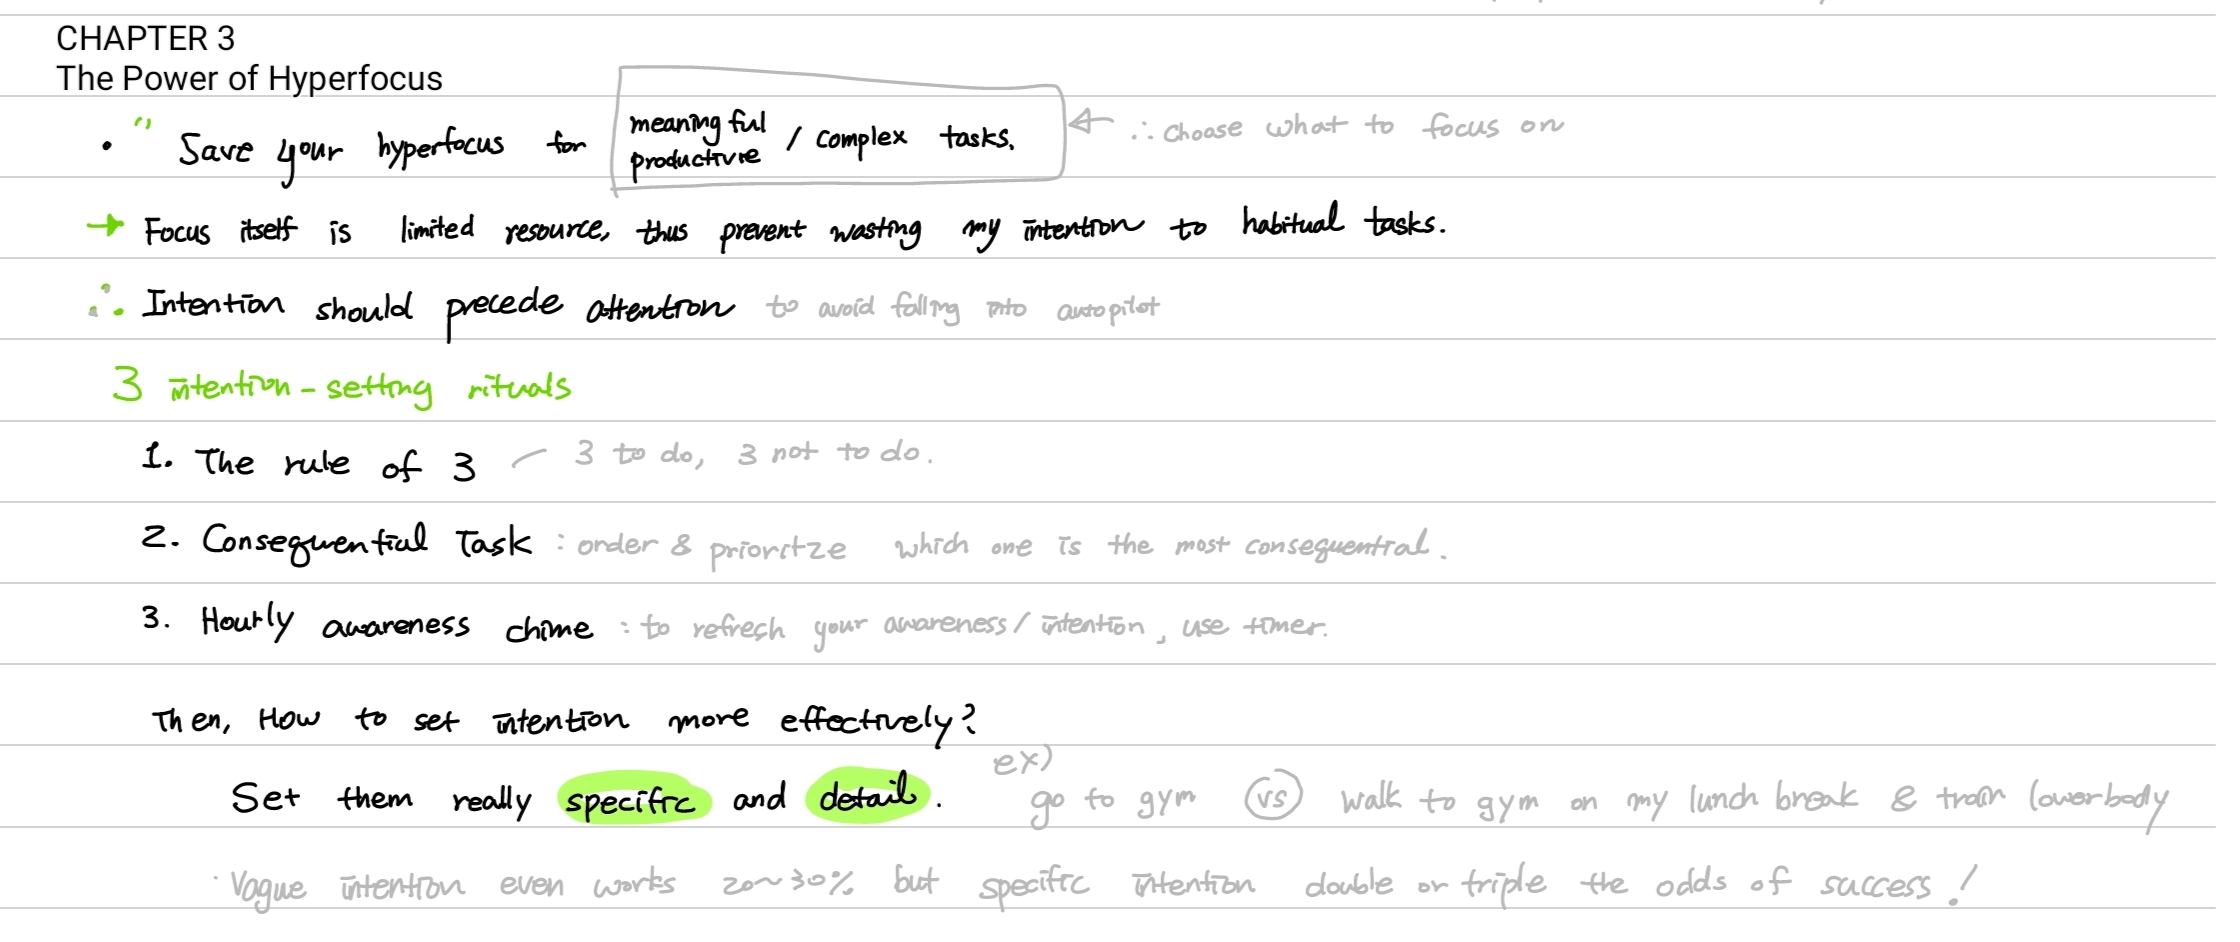 CHAPTER 3
The Power of Hyperfocus
• " Save your hyperfocus for meaningful productive / complex tasks. ← ∴ Choose what to focus on
→ Focus itself is limited resource, thus prevent wasting my intention to habitual tasks.
∴ Intention should precede attention to avoid falling into autopilot
3 intention-setting rituals
1. The rule of 3 – 3 to do, 3 not to do.
2. Consequential Task : order & prioritze which one is the most consequential.
3. Hourly awareness chime : to refresh your awareness / intention, use timer.
Then, How to set intention more effectively?
Set them really specific and detail. ex) go to gym vs walk to gym on my lunch break & train lowerbody
· Vague intention even works 20~30% but specific intention double or triple the odds of success!